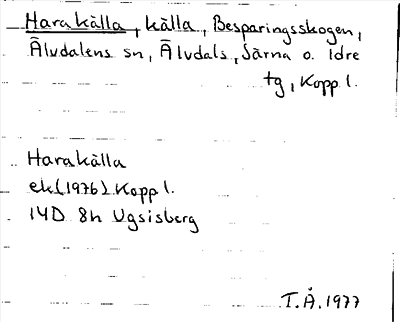 Harakälla, källa, Besparingsskogen,
Älvdalens sn, Älvdals, Särna o. Idre
tg, Kopp l.
Harakälla
ek (1976) Kopp l.
14D 8h Ugsisberg
T.Å. 1977